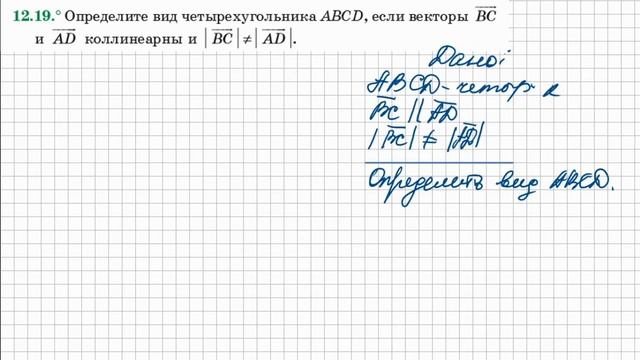 12.19.° Определите вид четырехугольника ABCD, если векторы BC
и AD коллинеарны и |BC| ≠ |AD|.
Дано:
ABCD – четыр-к
BC || AD
|BC| ≠ |AD|
Определить вид ABCD.